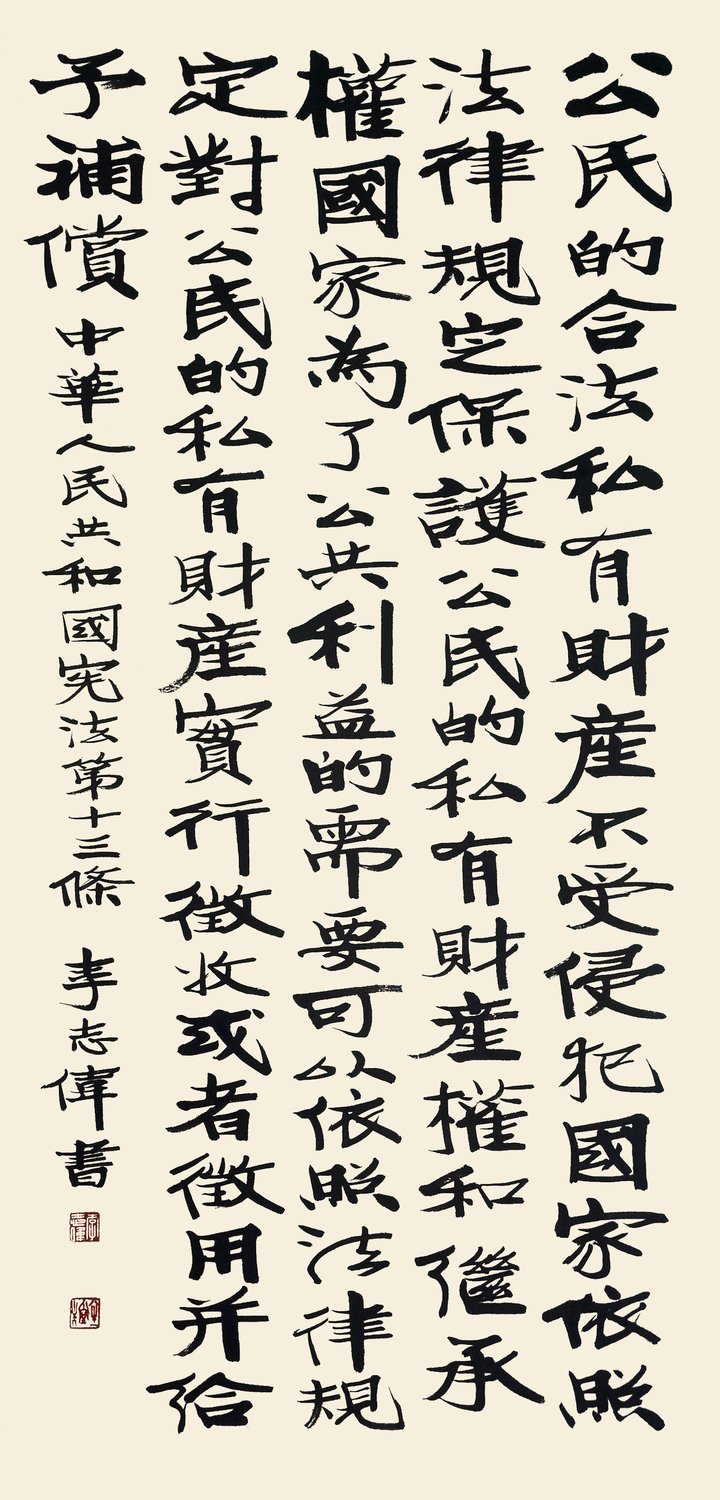 公民的合法私有財産不受侵犯國家依照
法律規定保護公民的私有財産權和繼承
權國家為了公共利益的需要可以依照法律規
定對公民的私有財産實行徵收或者徵用并給
予補償中華人民共和國宪法第十三條 李志偉書